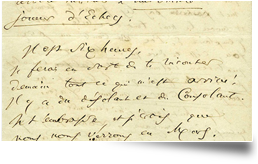 joueur d'Echecs.
Il est six heures.
Je ferai en sorte de te raconter
demain tout ce qui m'est arrivé!
Il y a du désolant et du Consolant.
Je t'embrasse, et je crois, que
nous nous verrons en